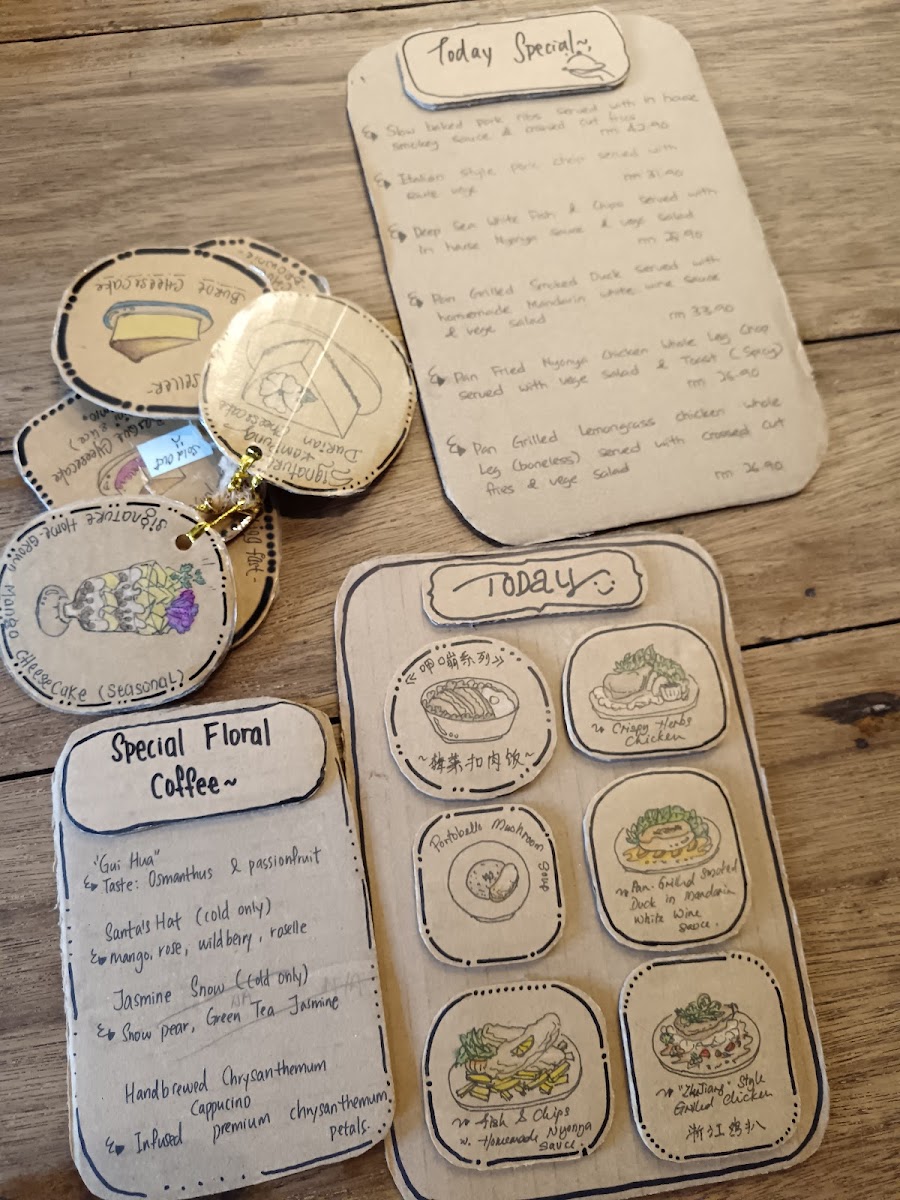 Today Special~
Slow baked pork ribs served with in house
smokey sauce & crossed cut fries
Italian style pork chop served with
vege
rm 31.90
Deep Sea White Fish & Chips served with
in house Nyonya sauce & vege salad
Pan Grilled Smoked Duck served with
homemade Mandarin white wine sauce
& vege salad
rm 33.90
Pan Fried Nyonya Chicken Whole Leg Chop
served with vege salad & Toast (Spicy)
rm 26.90
Pan Grilled Lemongrass chicken whole
Leg (boneless) served with crossed cut
fries & vege salad
rm 26.90
BURNT CHEESECAKE
Signature
Kampung
Durian
Cheesecake
Sold Out
Signature Home-Grown Mango Cheesecake (Seasonal)
Special Floral
Coffee~
"Gui Hua"
Taste: Osmanthus & passionfruit
Santa's Hat (cold only)
mango, rose, wildberry, roselle
Jasmine Snow (cold only)
Snow pear, Green Tea Jasmine
Handbrewed Chrysanthemum
Cappucino
Infused premium chrysanthemum
petals.
TODAY
《呷嘣系列》
~梅菜扣肉饭~
~ Crispy Herbs
Chicken
Portobello Mushroom Soup
~ Pan-Grilled Smoked
Duck in Mandarin
White Wine
Sauce.
~ Fish & Chips
w. Homemade Nyonya
Sauce.
~ "ZheJiang" Style
Grilled Chicken
浙江鸡扒